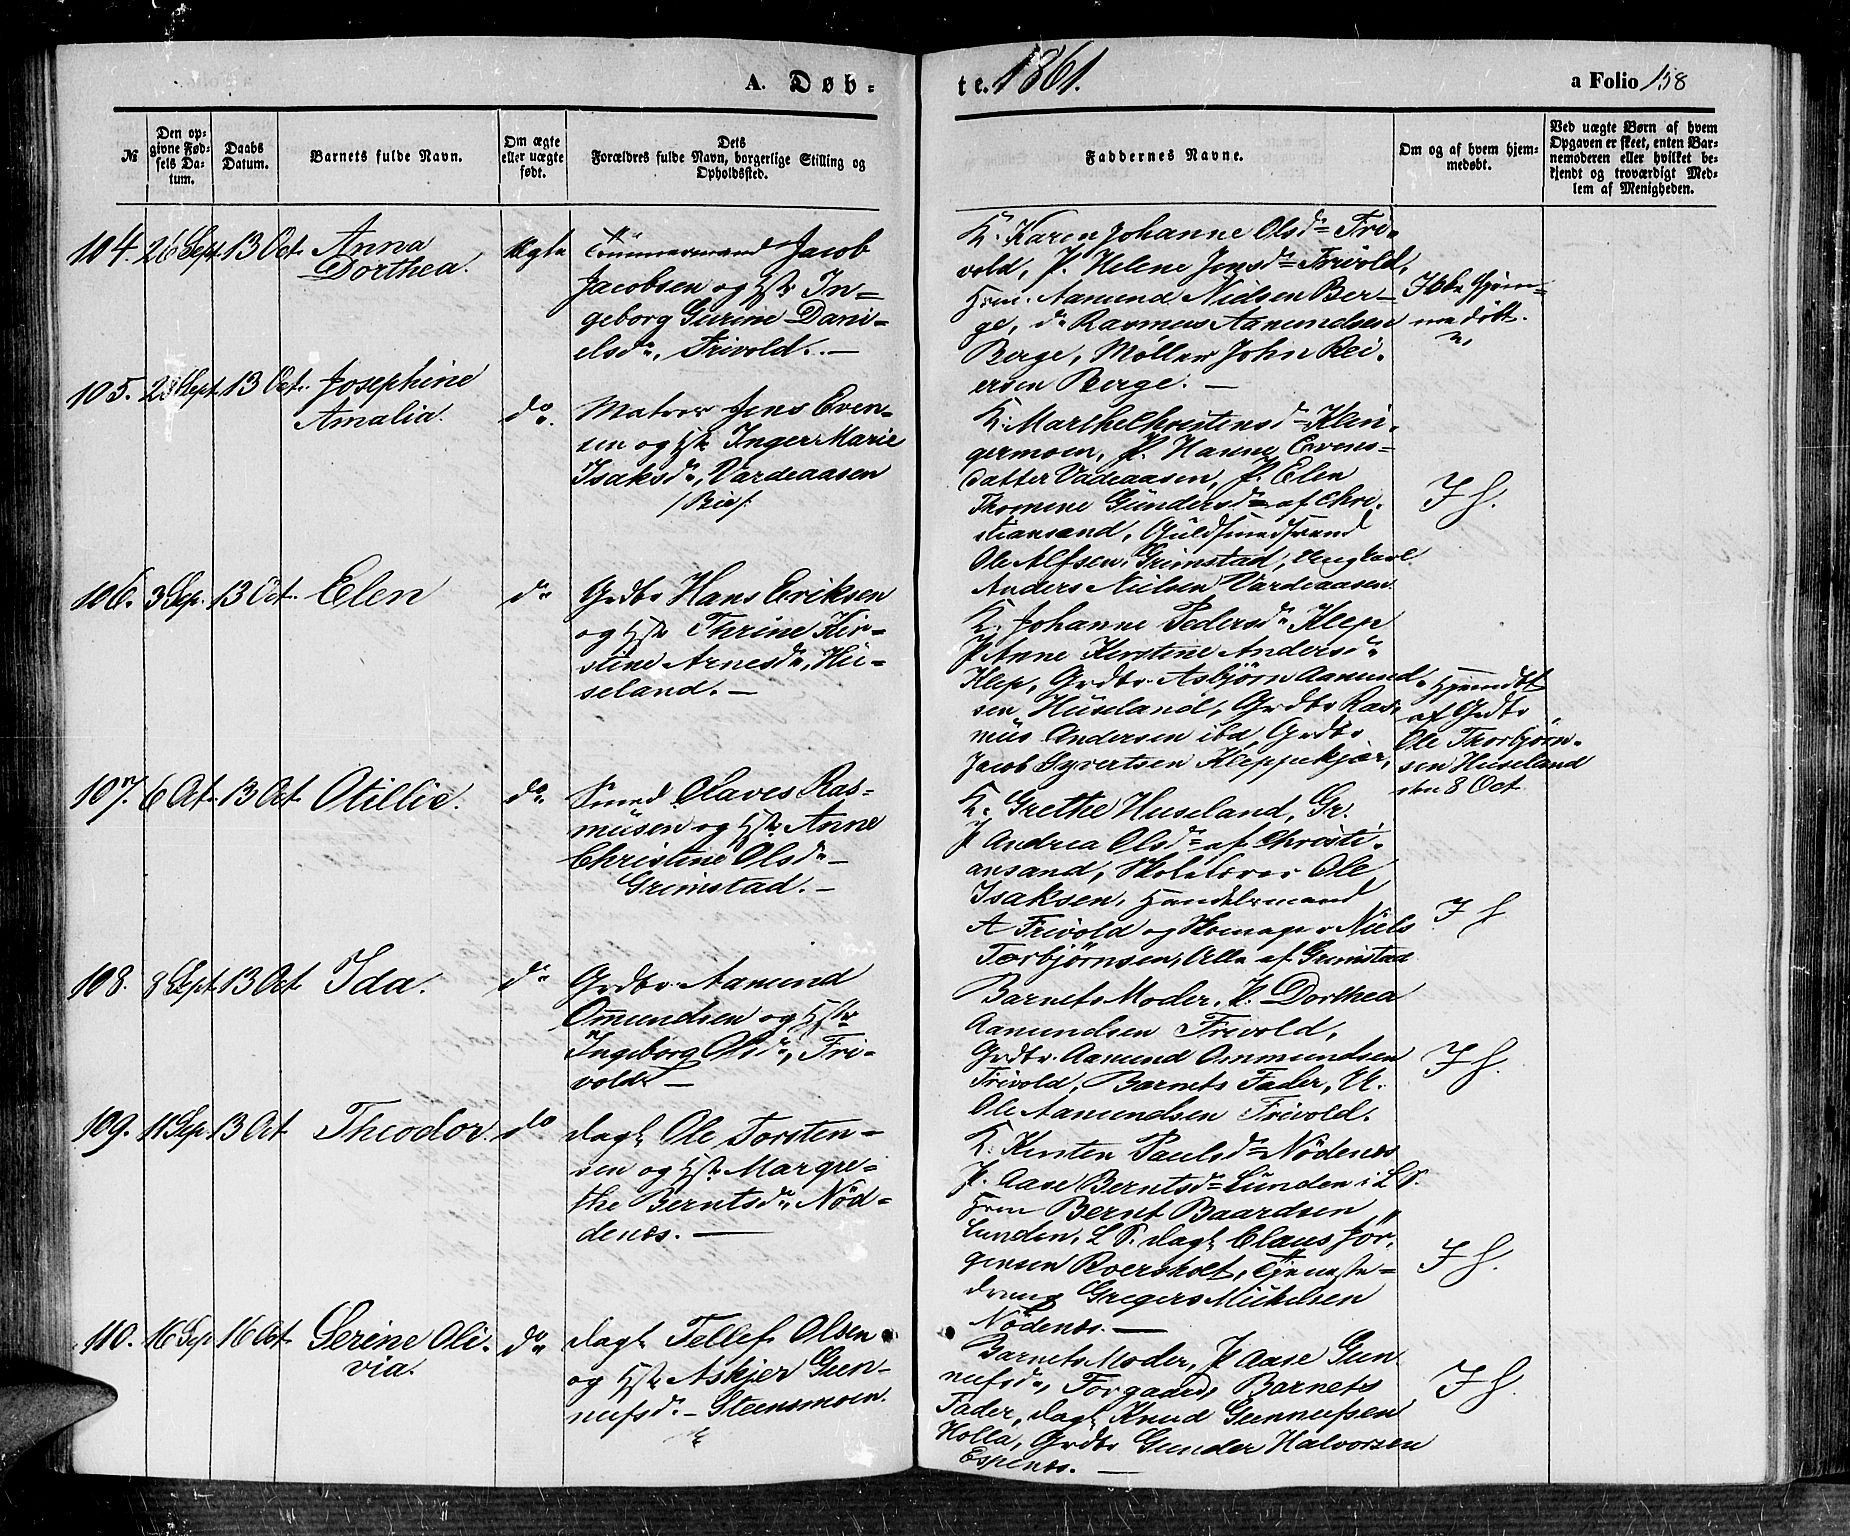 A. Døb=
te. 1861.
a Folio 158
No
Den op=
givne Fød=
sels Da=
tum.
Daabs
Datum.
Barnets fulde Navn.
Om ægte
eller uægte
født.
Dets
Forældres fulde Navn, borgerlige Stilling og
Opholdssted.
Faddernes Navne.
Om og af hvem hjem=
medøbt.
Ved uægte Børn af hvem
Opgaven er skeet, enten Bar=
nemoderen eller hvilket be=
kjendt og troværdigt Med=
lem af Menigheden.
104. 26 Sept. 13 Oct. Anna
Dorthea.
Ægte
Tømmermand Jacob
Jacobsen og Hst. In=
geborg Gurine Dani=
elsd., Frivold. —
K. Karen Johanne Olsd. Fri=
vold, P. Helene Jensd. Frivold,
Hrm. Aamund Nielsen Ber=
ge, do Rasmus Aamundsen
Berge, Møller John Rei=
ersen Berge. —
Ikke hjem=
medøbt.
105. 28 Sept. 13 Oct. Josephine
Amalia.
do.
Matros Jens Even=
sen og Hst. Inger Marie
Isaksd., Vardeaasen
/Bie/.
K. Marthe Christensd. Klin=
germoen, P. Hanne Evens=
datter Vadeaasen, P. Elen
Thomine Gundersd. af Chri=
stiansand, Guldsmedsvend
Ole Alfsen, Grimstad, Ungkarl
Anders Nielsen Vardeaasen.
I H.
106. 3 Sep. 13 Oct. Elen
do
Grdbr. Hans Eriksen
og Hst. Thrine Kir=
stine Arnesd., Hu=
seland. —
K. Johanne Pedersd. Klep
P. Anne Kirstine Andersd.
Klep, Grdbr. Asbjørn Aamund=
sen Huseland, Grdbr. Ras=
mus Andersen ibd, Grdbr.
Jacob Syvertsen Kleppekjær,
Hjemdbt
af Grdbr.
Ole Thorbjørn=
sen Huseland
den 8 Oct.
107. 6 Oct. 13 Oct. Otillie.
do.
Smed Olaves Ras=
musen og Hst. Anne
Christine Olsd. —
Grimstad. —
K. Grethe Huseland, Gr.
P. Andrea Olsd. af Christi=
ansand, Skolelærer Ole
Isaksen, Handelsmand
A Frivold og Skomager Niels
Torbjørnsen, Alle af Grimstad
I H
108. 8 Sept. 13 Oct. Ida.
do
Grdbr. Aamund
Omundsen og Hst.
Ingeborg Olsd., Fri=
vold. —
Barnets Moder, P. Dorthea
Aamundsen Frivold,
Grdbr. Aamund Ommundsen
Frivold, Barnets Fader, U.
Ole Aamundsen Frivold.
I H.
109. 11 Sep. 13 Oct. Theodor.
do
Dagl. Ole Torsten=
sen og Hst. Margre=
the Berntsd. Nød=
denes. —
K. Kirsten Paulsd. Nödenes
P. Aase Berntsd. Lunden i L S.
Hrm Bernt Baardsen
Lunden, L S. Dagl. Claus Jör=
gensen Roersholt, Tjeneste=
dreng Gregers Mickelsen
Nödenes. —
I H.
110. 16 Sep 16 Oct. Serine Oli=
via.
do
Dagl. Tellef Olsen
og Hst. Askjer Gun=
nufsd. — Steensmoen.
Barnets Moder, P. Aase Gun=
nufsd., Torgaard, Barnets
Fader, Dagl. Knud Gunnufsen
Holla, Grdbr. Gunder Halvorsen
Espenes. —
I H.